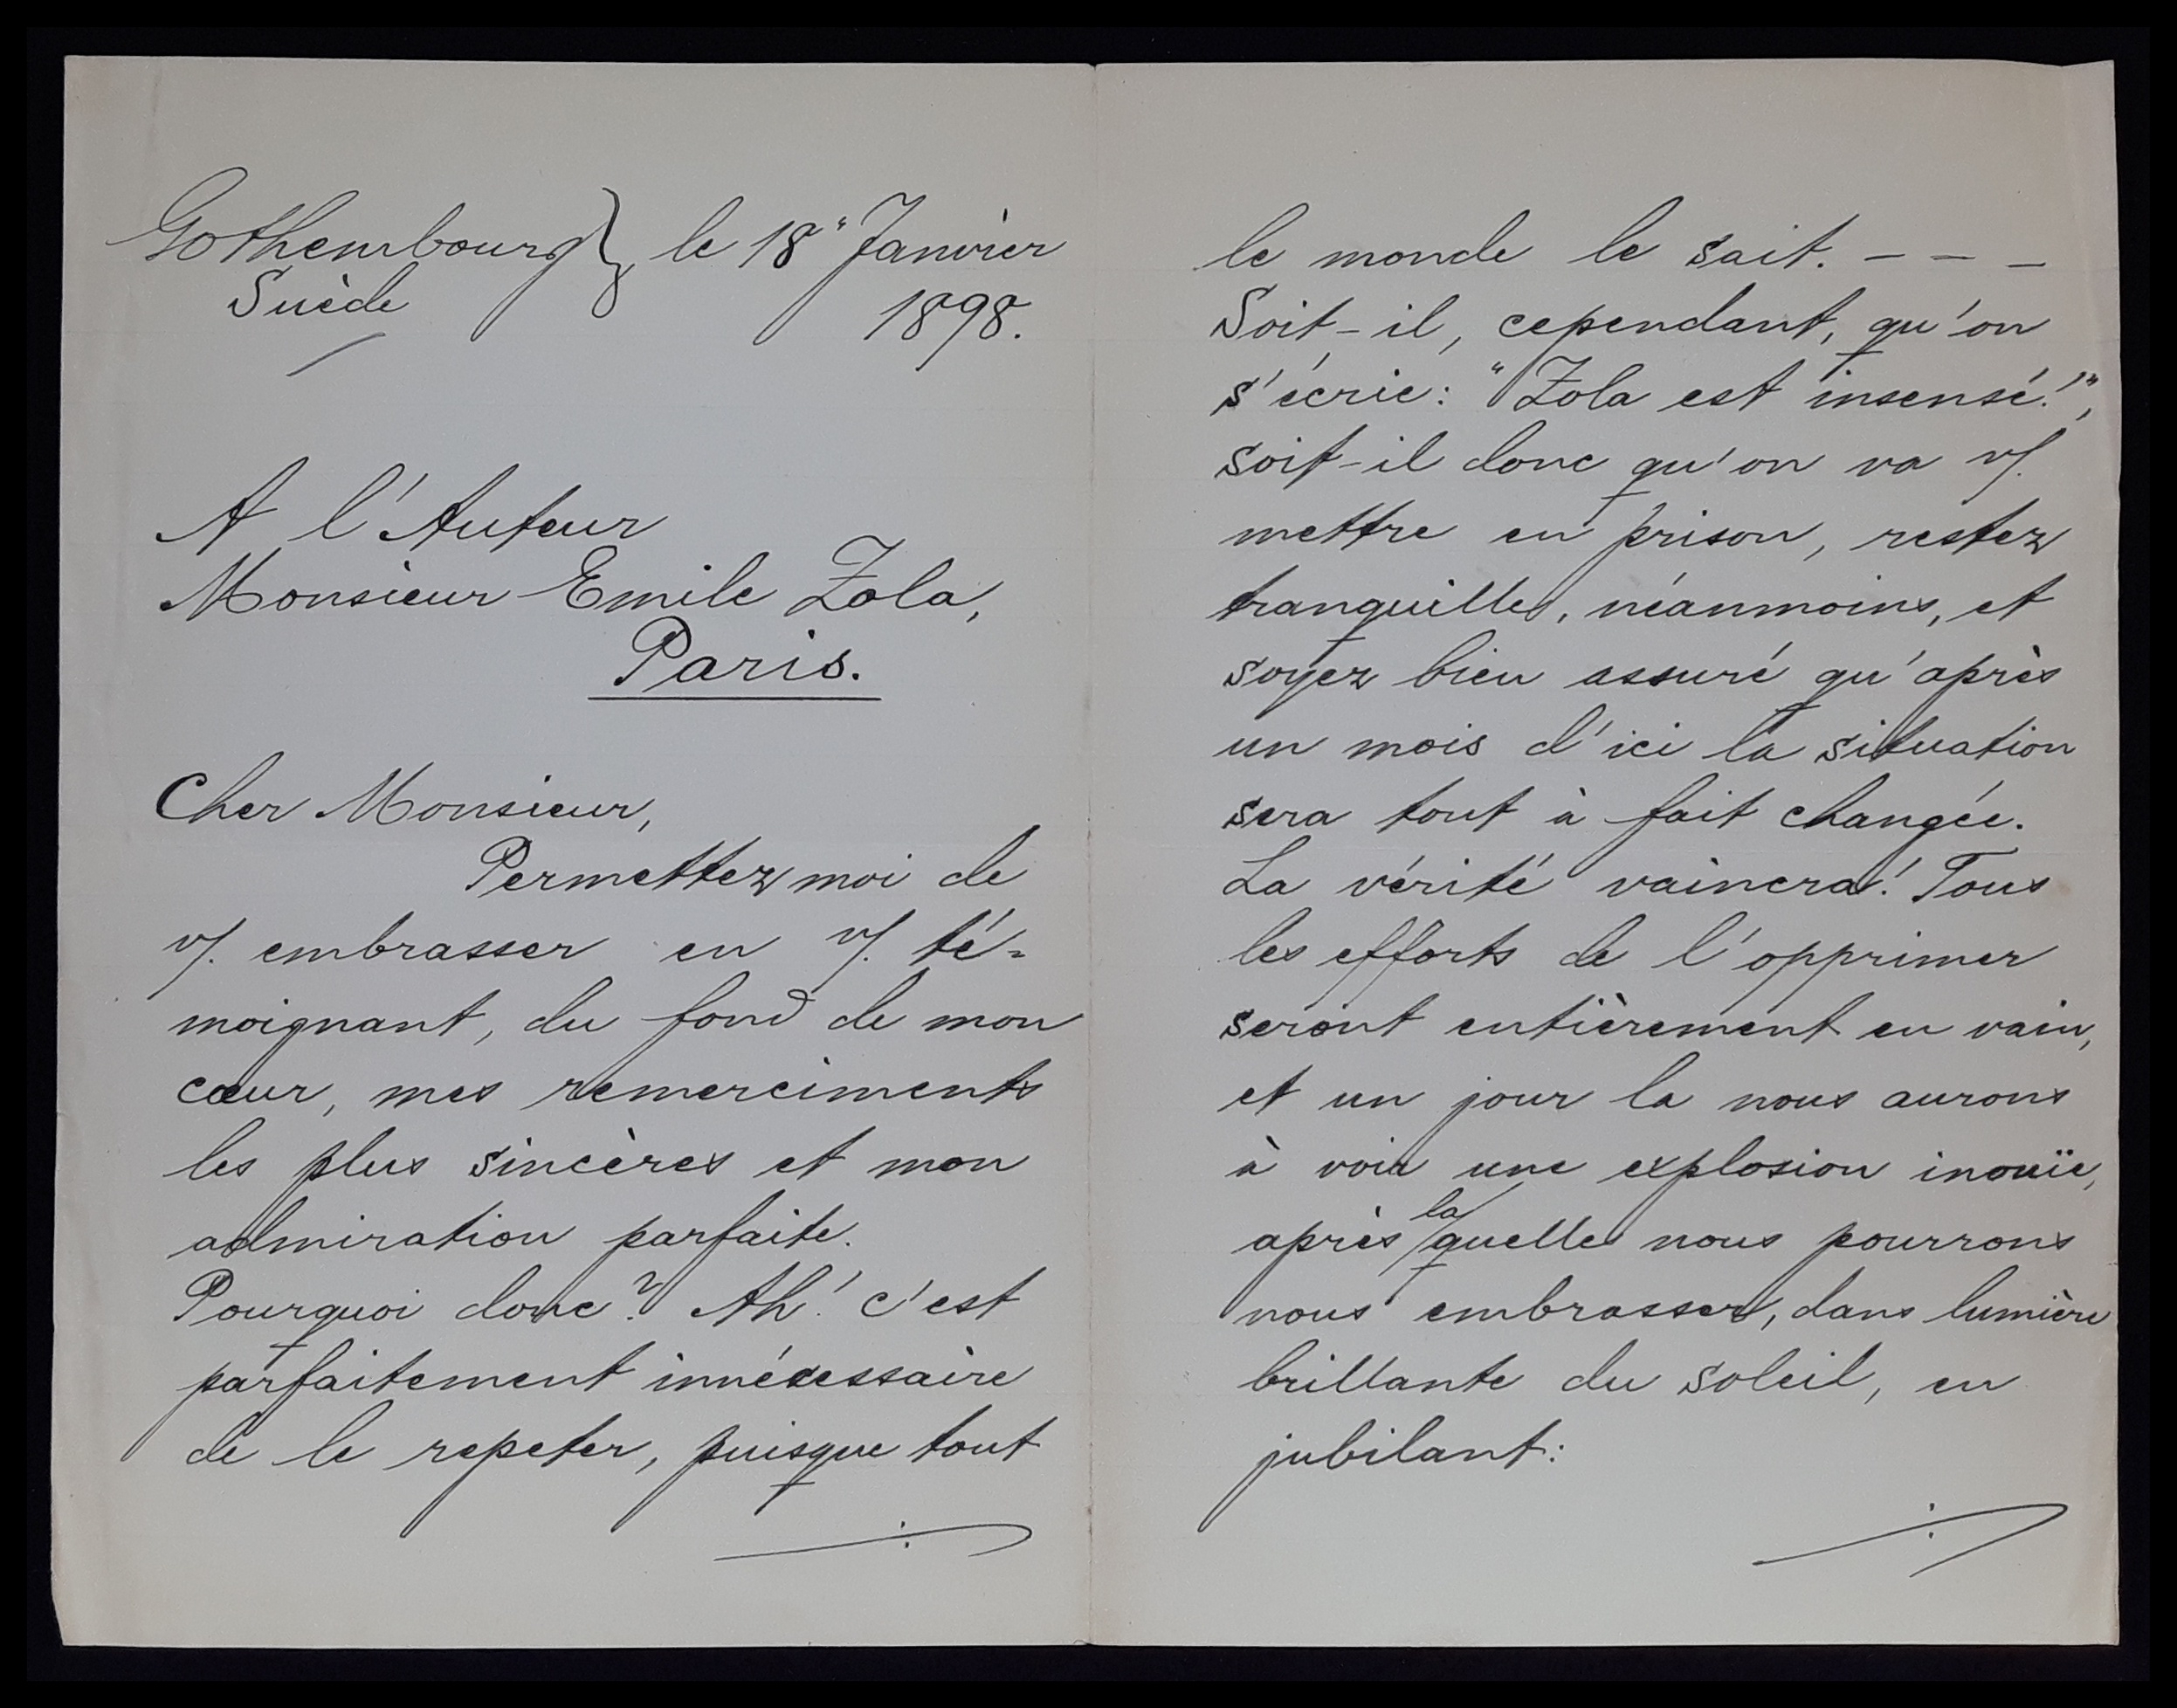 Gothembourg } le 18" Janvier
Suède
1898.
A l'Auteur
Monsieur Emile Zola,
Paris.
Cher Monsieur,
Permettez moi de
v/. embrasser en v/. té=
moignant, du fond de mon
cœur, mes remerciments
les plus sincères et mon
admiration parfaite.
Pourquoi donc? Ah! c'est
parfaitement innécessaire
de le repeter, puisque tout
le monde le sait. - - -
Soit-il, cependant, qu'on
s'écrie: "Zola est insensé!",
soit-il donc qu'on va v/.
mettre en prison, restez
tranquilles, néanmoins, et
soyez bien assuré qu'après
un mois d'ici la situation
sera tout à fait changée.
La vérité vaincra! Tous
les efforts de l'opprimer
seront entièrement en vain,
et un jour la nous aurons
à voir une explosion inouïe,
après laquelle nous pourrons
nous embrasser, dans lumière
brillante du soleil, en
jubilant: